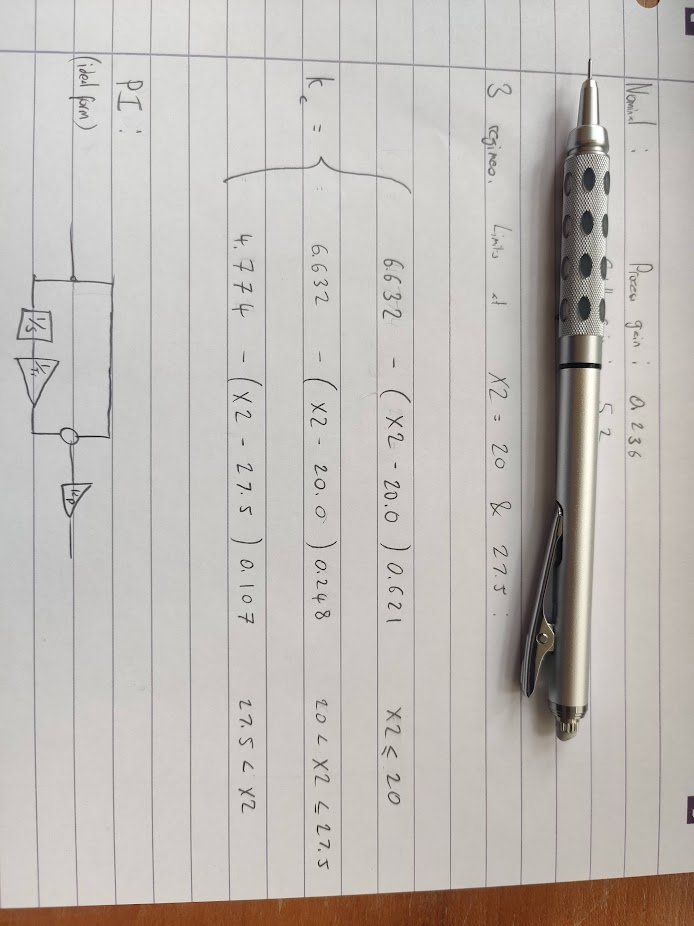 Nominal : Process gain : 0.236
5.2
3 regimes. Limits at X2 = 20 & 27.5 :
6.632 - (X2 - 20.0) 0.621 X2 ≤ 20
kc = 6.632 - (X2 - 20.0) 0.248 20 < X2 ≤ 27.5
4.774 - (X2 - 27.5) 0.107 27.5 < X2
PI :
(ideal form)
1/s 1/τI kp